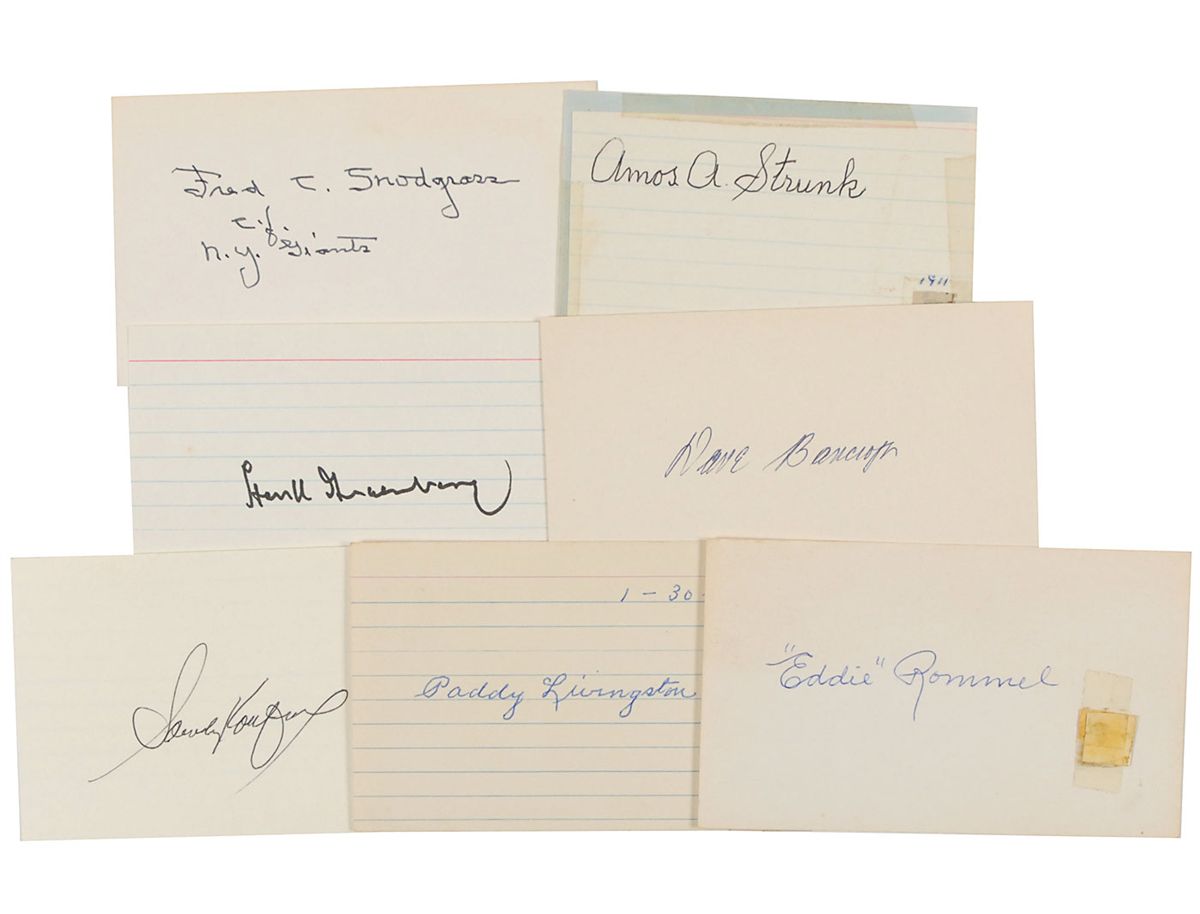 Fred C. Snodgrass
c.f.
N.Y. Giants
Amos A. Strunk
1911
Hank Greenberg
Dave Bancroft
Sandy Koufax
1 - 30
Paddy Livingston
"Eddie" Rommel